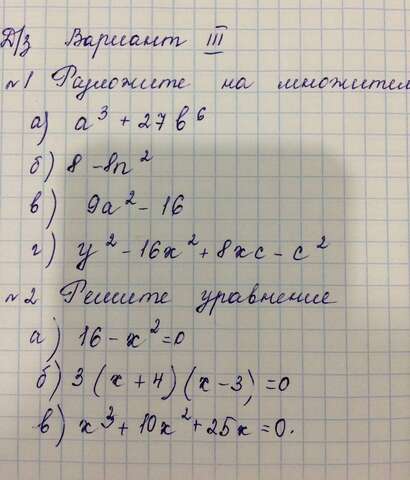 Д/з Вариант III
№1 Разложите на множител
а) a³ + 27b⁶
б) 8 - 8n²
в) 9a² - 16
г) y² - 16x² + 8xc - c²
№2 Решите уравнение
а) 16 - x² = 0
б) 3(x + 4)(x - 3) = 0
в) x³ + 10x² + 25x = 0.